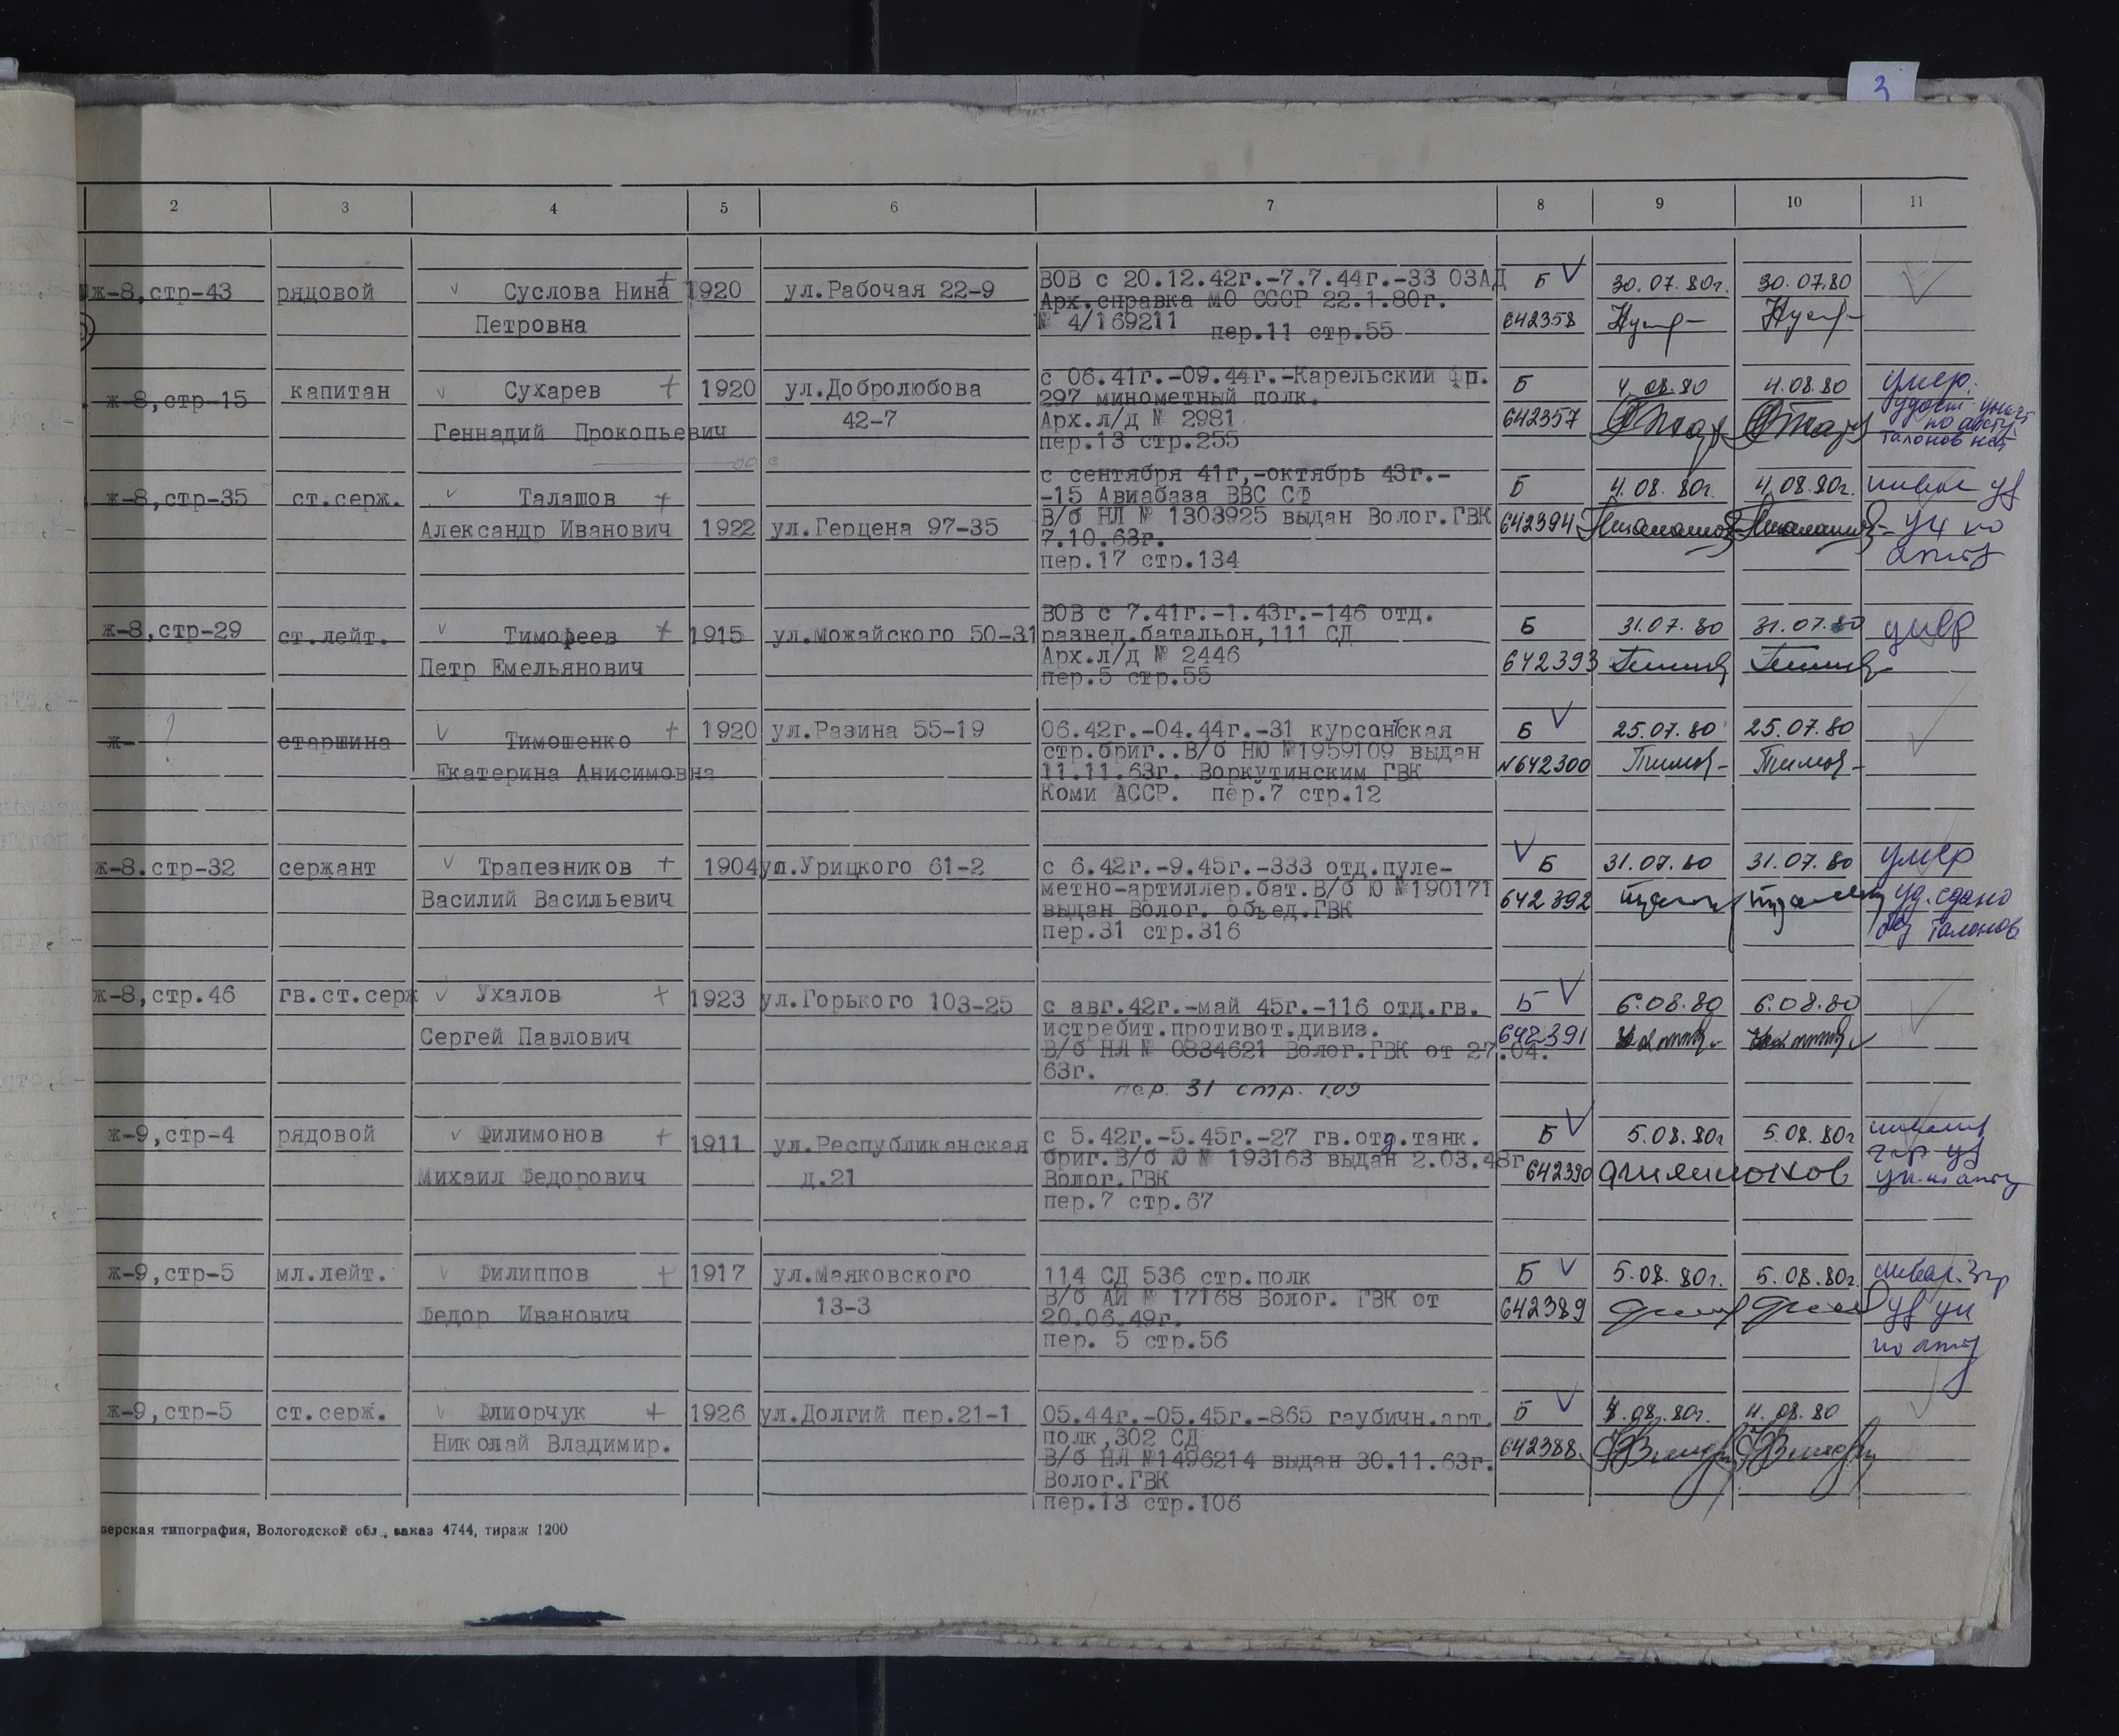 3
2 3 4 5 6 7 8 9 10 11
ж-8,стр-43 рядовой Суслова Нина 1920 ул.Рабочая 22-9 ВОВ с 20.12.42г.-7.7.44г.-33 ОЗАД Б 30.07.80г. 30.07.80
Арх.справка МО СССР 22.1.80г.
Петровна № 4/169211 642358
пер.11 стр.55
ж-8,стр-15 капитан Сухарев 1920 ул.Добролюбова с 06.41г.-09.44г.-Карельский фр. Б 4.08.80 4.08.80 умер.
297 минометный полк. удост.
Геннадий Прокопьевич 42-7 Арх.л/д № 2981 642357 по акту
пер.13 стр.255 талонов нет
с сентября 41г,-октябрь 43г.-
ж-8,стр-35 ст.серж. Талашов -15 Авиабаза ВВС СФ Б 4.08.80г. 4.08.80г.
Александр Иванович 1922 ул.Герцена 97-35 В/б НЛ № 1303925 выдан Волог.ГВК 642394 по
7.10.63г.
пер.17 стр.134
ВОВ с 7.41г.-1.43г.-146 отд.
ж-8,стр-29 ст.лейт. Тимофеев 1915 ул.Можайского 50-31 развед.батальон,111 СД Б 31.07.80 31.07.80 умер
Петр Емельянович Арх.л/д № 2446 642393
пер.5 стр.55
ж- ? старшина Тимошенко 1920 ул.Разина 55-19 06.42г.-04.44г.-31 курсантская Б 25.07.80 25.07.80
стр.бриг..В/б НЮ №1959109 выдан
Екатерина Анисимовна 11.11.63г. Воркутинским ГВК №642300
Коми АССР. пер.7 стр.12
ж-8.стр-32 сержант Трапезников 1904 ул.Урицкого 61-2 с 6.42г.-9.45г.-333 отд.пуле- Б 31.07.80 31.07.80 умер
Василий Васильевич метно-артиллер.бат.В/б Ю №190171 642392 уд.сдано
выдан Волог. объед.ГВК без талонов
пер.31 стр.316
ж-8,стр.46 гв.ст.серж Ухалов 1923 ул.Горького 103-25 с авг.42г.-май 45г.-116 отд.гв. Б 6.08.80 6.08.80
истребит.противот.дивиз.
Сергей Павлович В/б НЛ № 0834621 Волог.ГВК от 27.04. 642391
63г.
пер. 31 стр. 109
ж-9,стр-4 рядовой Филимонов 1911 ул.Республиканская с 5.42г.-5.45г.-27 гв.отд.танк. Б 5.08.80г 5.08.80г
бриг.В/б Ю № 193163 выдан 2.03.48г
Михаил Федорович д.21 Волог.ГВК 642390 Филимонов
пер.7 стр.67
ж-9,стр-5 мл.лейт. Филиппов 1917 ул.Маяковского 114 СД 536 стр.полк Б 5.08.80г. 5.08.80г.
Федор Иванович 13-3 В/б АИ № 17168 Волог. ГВК от 642389
20.06.49г.
пер. 5 стр.56
ж-9,стр-5 ст.серж. Флиорчук 1926 ул.Долгий пер.21-1 05.44г.-05.45г.-865 гаубичн.арт. Б 4.08.80г. 4.08.80
полк,302 СД
Николай Владимир. В/б НЛ №1496214 выдан 30.11.63г. 642388
Волог.ГВК
пер.13 стр.106
зерская типография, Вологодской обл., заказ 4744, тираж 1200